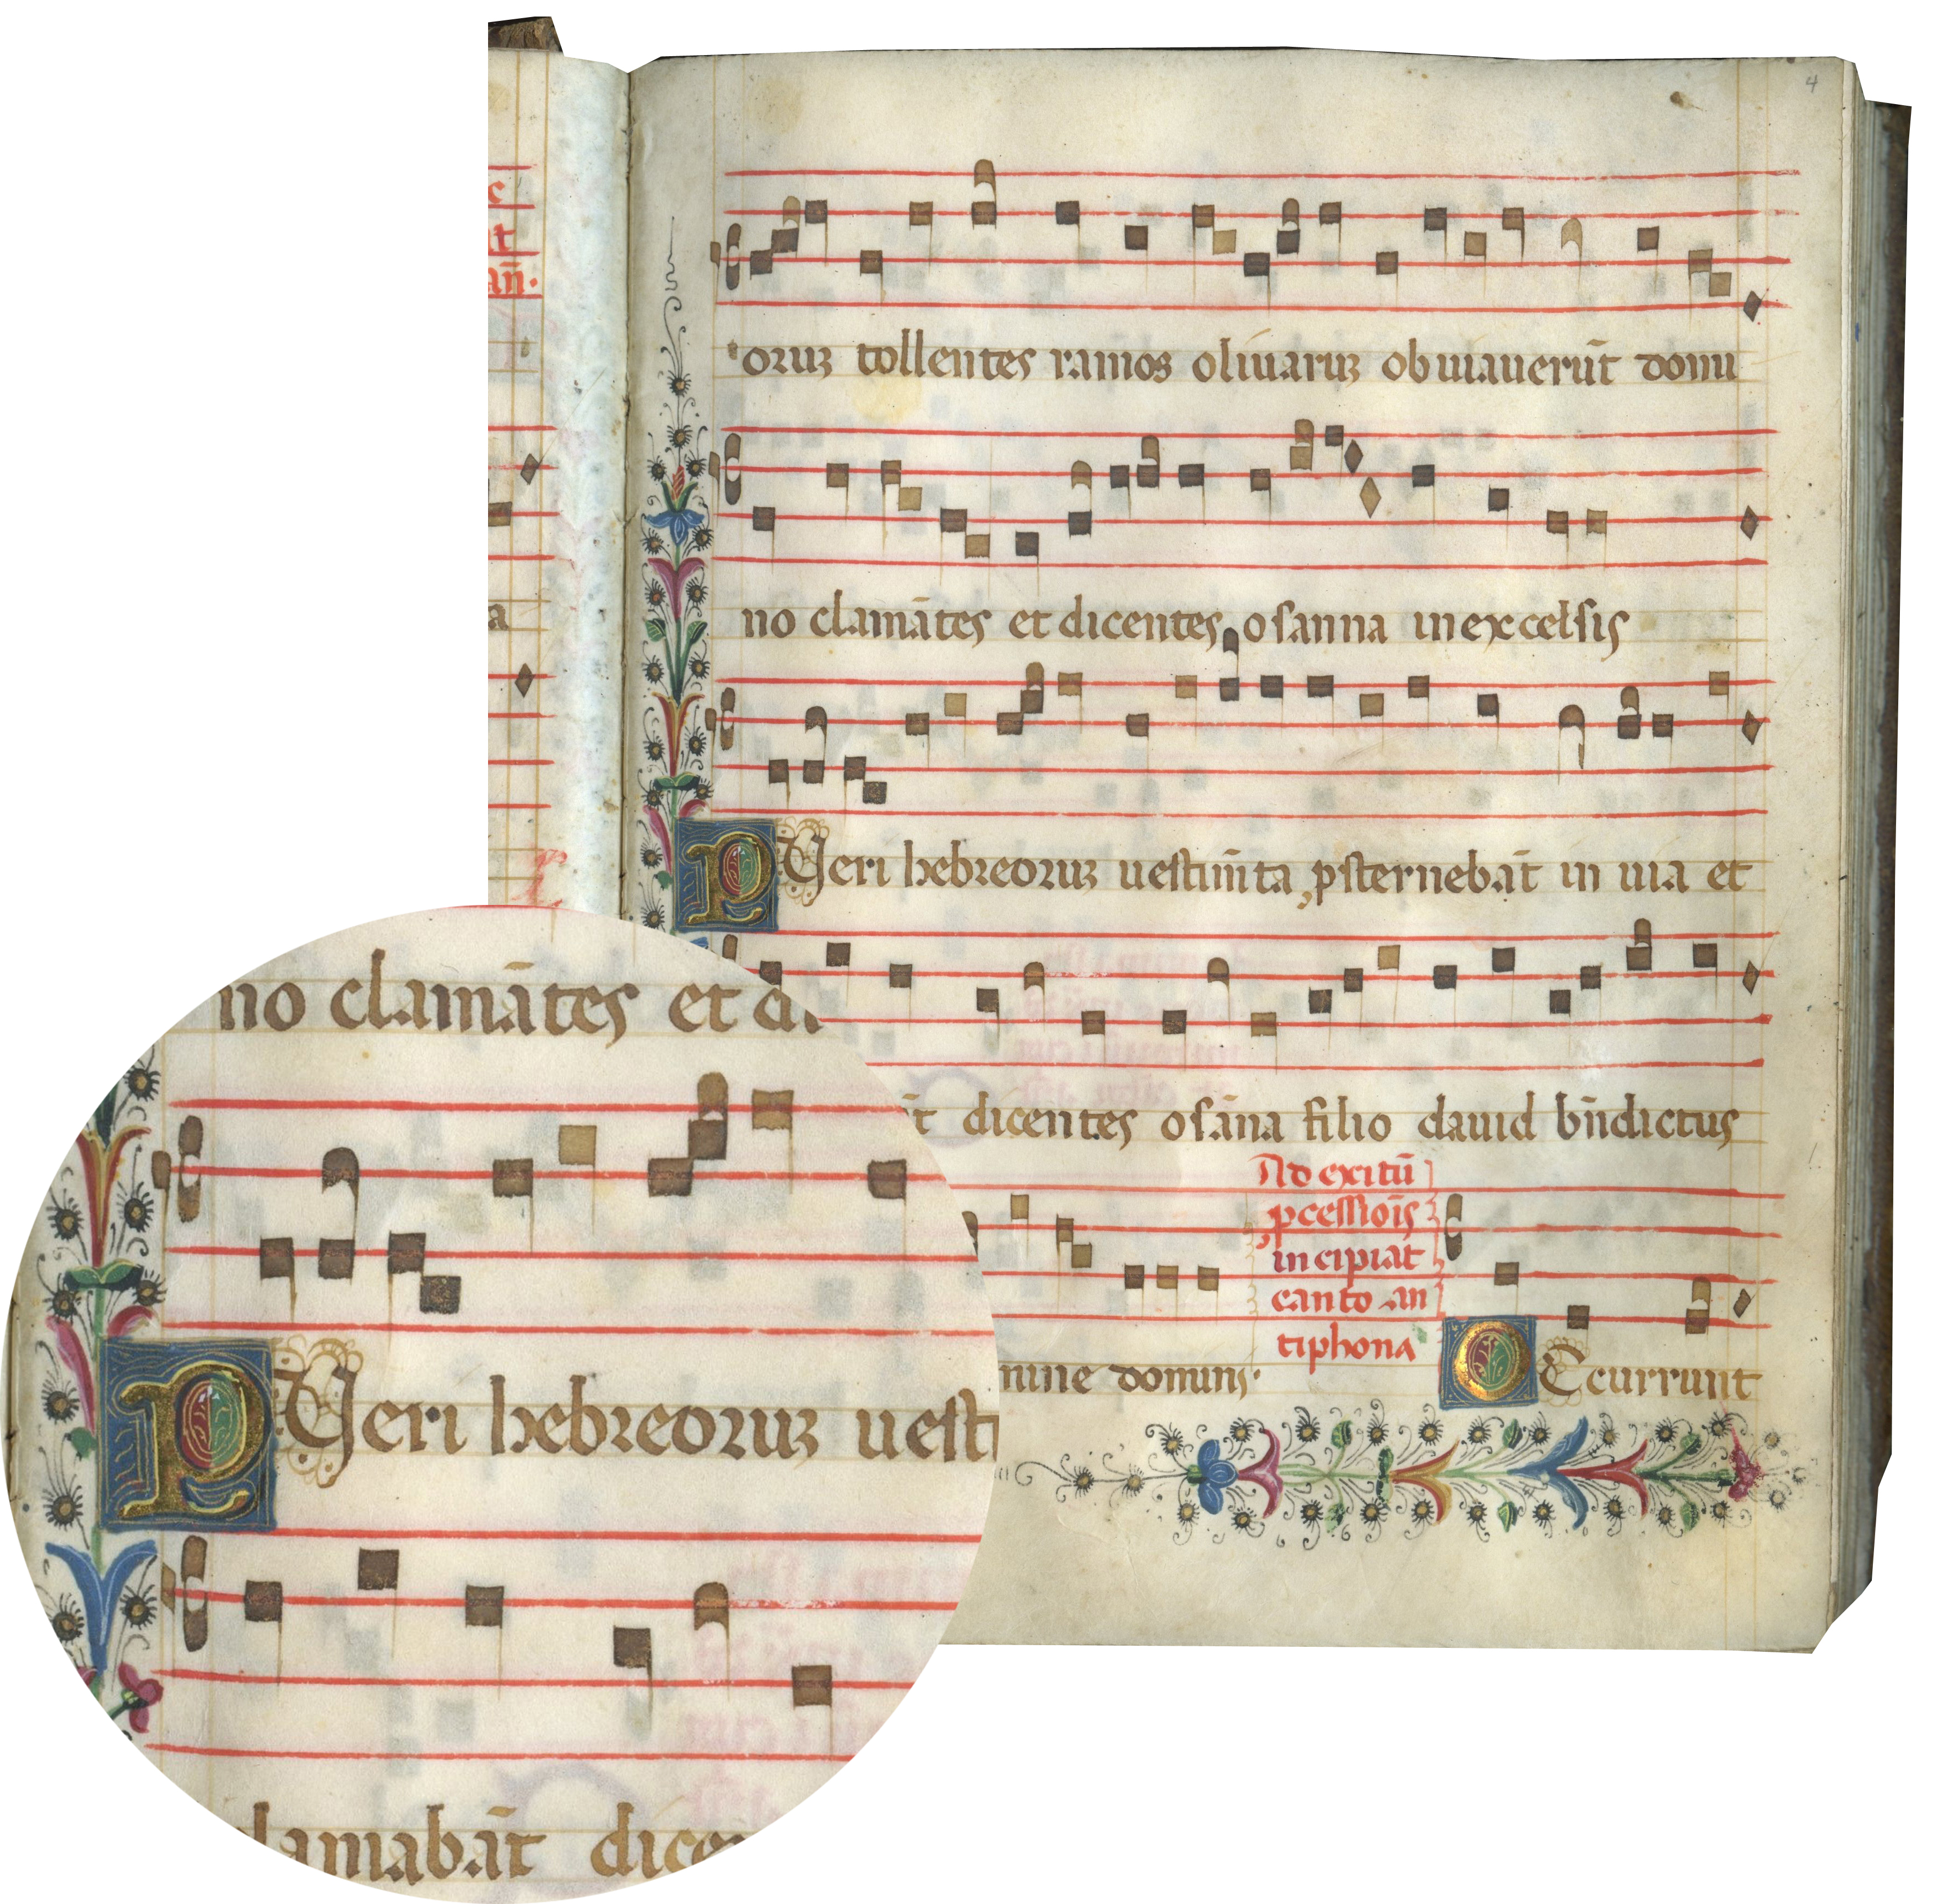 4
c
it
an̄.
a
oruꝫ tollentes ramos oliuaruꝫ obuiauerūt domi
no clamātes et dicentes osanna in excelsis
PVeri hebreoruꝫ uestim̄ta ꝓsternebāt in uia et
t dicentes osāna filio dauid bn̄dictus
Ad exitū
ꝓcessiōis
incipiat
cantor an
tiphona
mine domini.
OCcurrunt
no clamātes et di
PVeri hebreoruꝫ uesti
clamabāt dicen